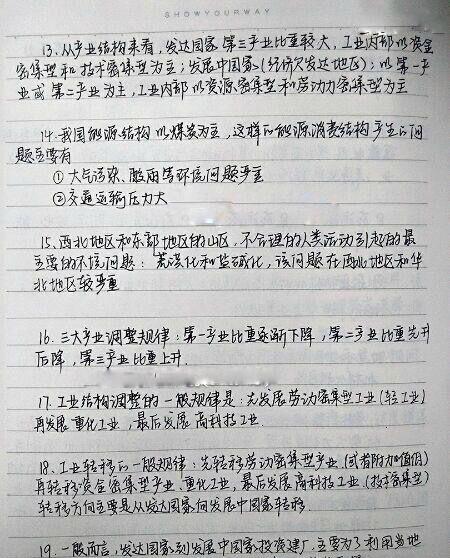 SHOWYOURWAY
13. 从产业结构来看，发达国家第三产业比重较大，工业内部以资金
密集型和技术密集型为主；发展中国家(经济欠发达地区)：以第一产
业或第二产业为主，工业内部以资源密集型和劳动力密集型为主
14. 我国能源结构以煤炭为主，这样的能源消费结构产生的问
题主要有
① 大气污染、酸雨等环境问题严重
② 交通运输压力大
15. 西北地区和东部地区的山区，不合理的人类活动引起的最
主要的环境问题：荒漠化和盐碱化，该问题在西北地区和华
北地区较严重
16. 三大产业调整规律：第一产业比重逐渐下降，第二产业比重先升
后降，第三产业比重上升.
17. 工业结构调整的一般规律是：先发展劳动密集型工业(轻工业)
再发展重化工业，最后发展高科技工业.
18. 工业转移的一般规律：先转移劳动密集型产业(或者附加值低)
再转移资金密集型产业、重化工业，最后发展高科技工业(技术密集型)
转移方向主要是从发达国家向发展中国家转移.
19. 一般而言，发达国家到发展中国家投资建厂，主要为了利用当地